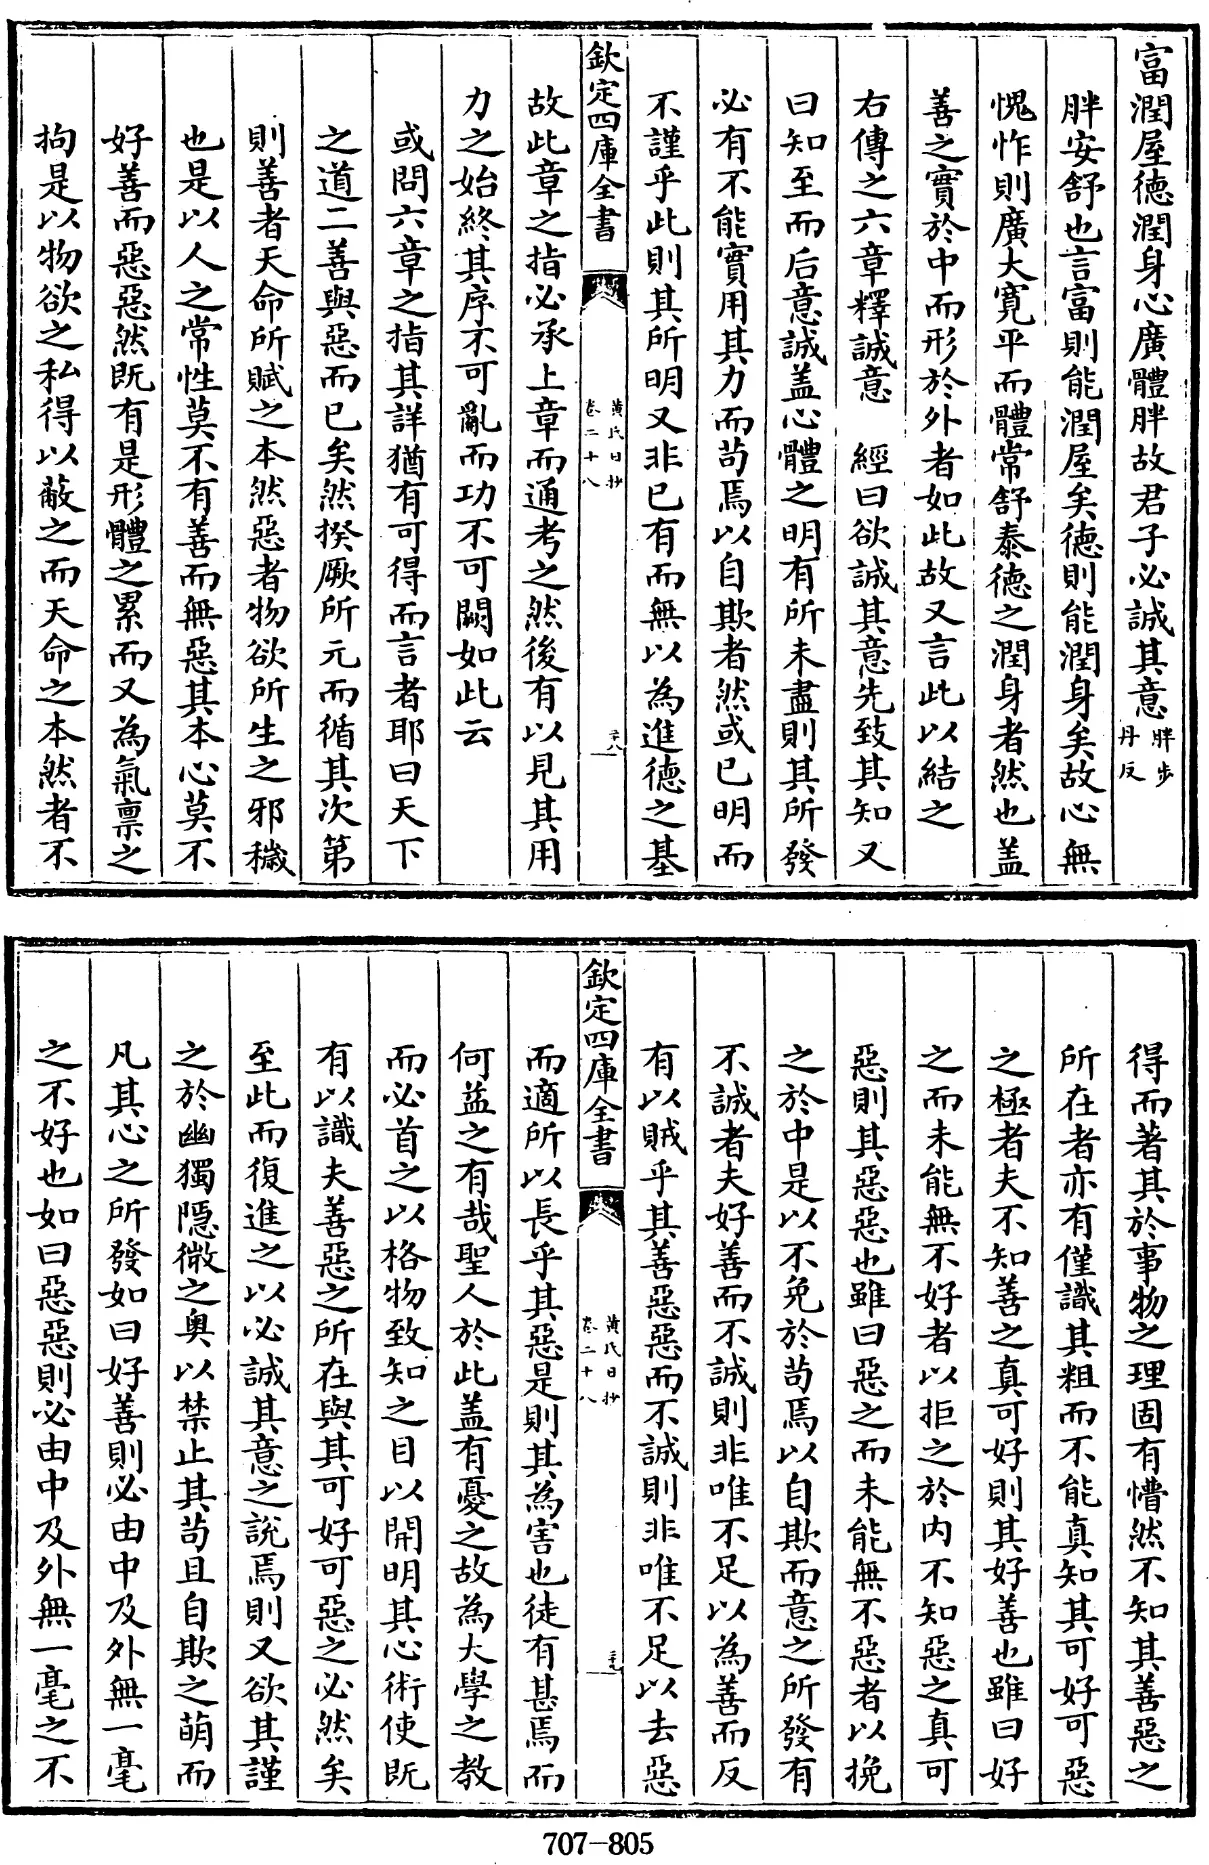 富潤屋德潤身心廣體胖故君子必誠其意胖步丹反
胖安舒也言富則能潤屋矣德則能潤身矣故心無
愧怍則廣大寛平而體常舒泰德之潤身者然也盖
善之實於中而形於外者如此故又言此以結之
右傳之六章釋誠意　經曰欲誠其意先致其知又
曰知至而后意誠盖心體之明有所未盡則其所發
必有不能實用其力而苟焉以自欺者然或已明而
不謹乎此則其所明又非已有而無以為進德之基
欽定四庫全書
黄氏日抄
卷二十八
二十八
故此章之指必承上章而通考之然後有以見其用
力之始終其序不可亂而功不可闕如此云
或問六章之指其詳猶有可得而言者耶曰天下
之道二善與惡而已矣然揆厥所元而循其次第
則善者天命所賦之本然惡者物欲所生之邪穢
也是以人之常性莫不有善而無惡其本心莫不
好善而惡惡然既有是形體之累而又為氣禀之
拘是以物欲之私得以蔽之而天命之本然者不
得而著其於事物之理固有懵然不知其善惡之
所在者亦有僅識其粗而不能真知其可好可惡
之極者夫不知善之真可好則其好善也雖曰好
之而未能無不好者以拒之於内不知惡之真可
惡則其惡惡也雖曰惡之而未能無不惡者以挽
之於中是以不免於苟焉以自欺而意之所發有
不誠者夫好善而不誠則非唯不足以為善而反
有以賊乎其善惡惡而不誠則非唯不足以去惡
欽定四庫全書
黄氏日抄
卷二十八
二十九
而適所以長乎其惡是則其為害也徒有甚焉而
何益之有哉聖人於此盖有憂之故為大學之教
而必首之以格物致知之目以開明其心術使既
有以識夫善惡之所在與其可好可惡之必然矣
至此而復進之以必誠其意之説焉則又欲其謹
之於幽獨隠微之奥以禁止其苟且自欺之萌而
凡其心之所發如曰好善則必由中及外無一毫
之不好也如曰惡惡則必由中及外無一毫之不
707-805